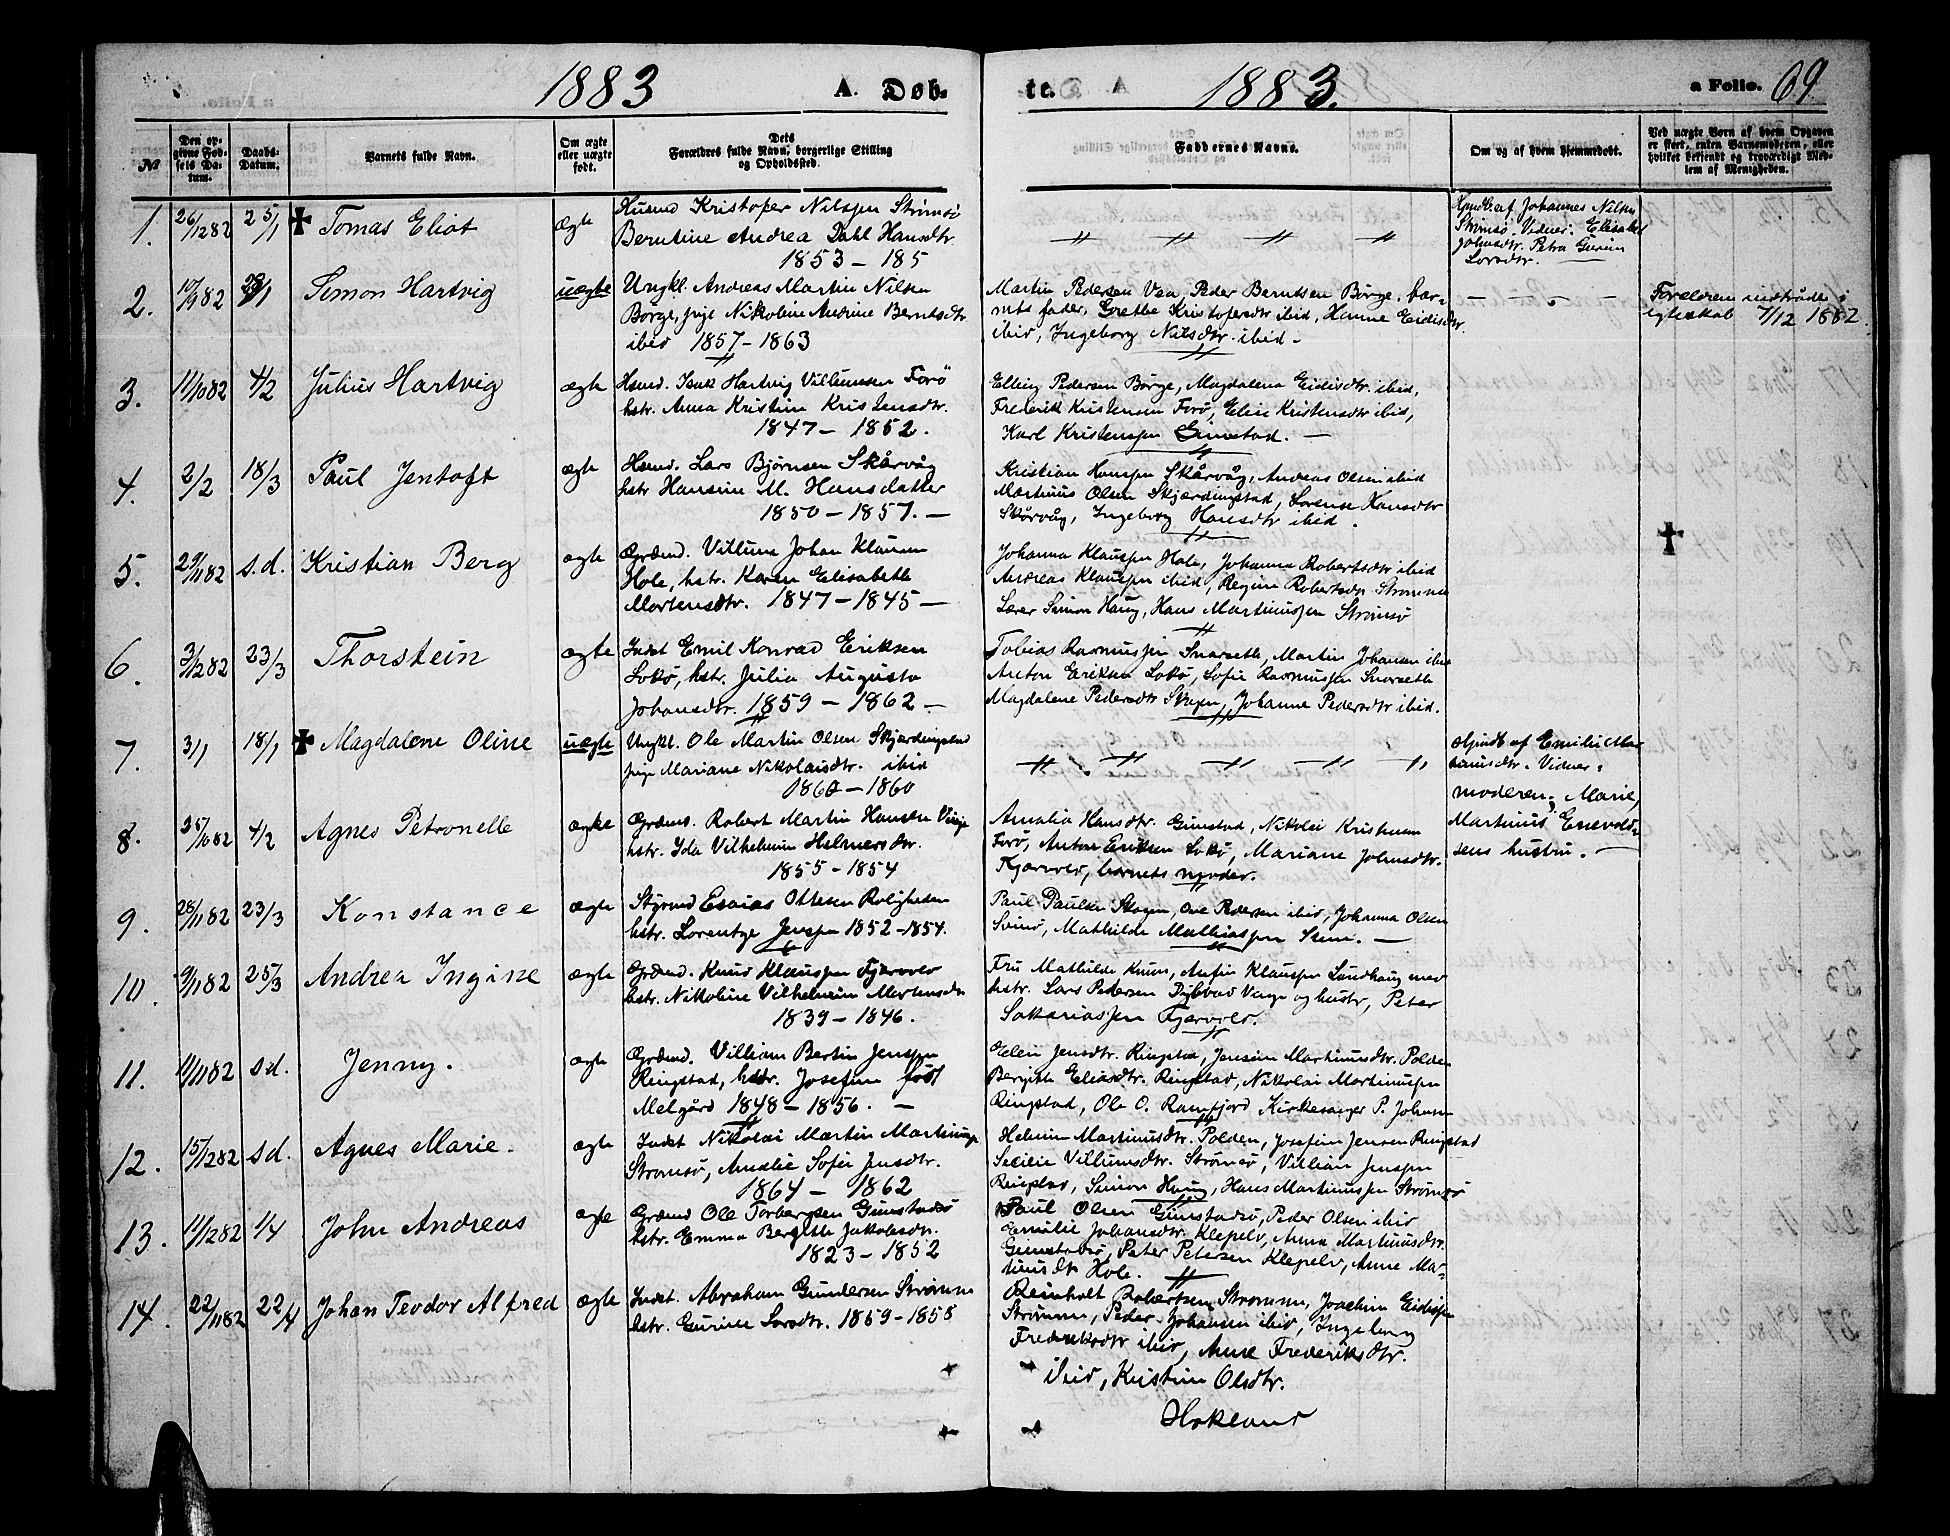 1883 A. Døb-
te. 1883. a Folio. 69
№
Den op-
givne Fød-
sels Da-
tum.
Daabs-
Datum.
Barnets fulde Navn.
Om ægte
eller uægte
født.
Dets
Forældres fulde Navn, borgerlige Stilling
og Opholdssted.
Faddernes Navne.
Om og af hvem hjemmedøbt.
Ved uægte Børn af hvem Opgaven
er skeet, enten Barnemoderen, eller
hvilket bekjendt og troværdigt Med-
lem af Menigheden.
1. 26/12 82 25/1 ✝ Tomas Eliot ægte
Husmd Kristofer Nilssen Strømsø
Berntine Andrea Dahl Hansdtr.
1853 – 185
〃 〃 〃 〃
af Johannes Nilsen
Strømsø. Vidner: Elisabet
Johnsdtr. Petra Gurine
Larsdtr.
2. 10/9 82 /1 Simon Hartvig uægte
Ungkl. Andreas Martin Nilsen
Børge, pige Nikoline Andrine Berntsdtr
ibid 1857 – 1863
Martin Pedersen Vea, Peder Berntsen Børge, bar-
nets fader, Grethe Kristofersdtr ibid, Hanne Eidisdtr.
ibid, Ingeborg Nilsdtr. ibid –
Foreldren indtrådte i
egteskab 7/12 1882.
3. 11/10 82 4/2 Julius Hartvig ægte
Hsmd. Isak Hartvig Villumsen Forø
hstr. Anna Kristine Kristensdtr.
1847 – 1852.
Elling Pedersen Børge, Magdalena Eidisdtr. ibid,
Frederik Kristensen Forø, Eline Kristensdtr ibid,
Karl Kristenssen Gimstad. —
4. 2/2 18/3 Paul Jentoft ægte
Hsmd. Lars Bjørnsen Skårvåg
hstr Hansine M. Hansdatter
1850 – 1857. –
Kristian Hanssen Skårvåg, Andreas Olsen ibid
Martinus Olsen Skjærdingstad, Lorense Hansdtr
Skårvåg, Ingeborg Hansdtr ibid.
5. 29/11 82 s.d. Kristian Berg ægte
Grdmd. Villum Johan Klausen
Hole, hstr. Karen Elisabeth
Mortensdtr. 1847 – 1845 –
Johanna Klaussen Hole, Johanna Robertsdtr ibid
Andreas Klaussen ibid, Regine Robertsdtr Strømme
Lærer Simon Haug, Hans Martinussen Strømsø
✝
6. 3/12 82 23/3 Thorstein ægte
Indst Emil Konrad Eriksen
Lokø, hstr. Julia Augusta
Johansdtr. 1859 – 1862 –
Tobias Rasmussen Snarseth, Martin Johansen ibid
Anton Eriksen Lokø, Sofie Rasmussen Snarseth
Magdalene Pedersdtr Skogen, Johanne Pedersdtr ibid.
7. 3/1 18/1 ✝ Magdalene Oline uægte
Ungkl. Ole Martin Olsen Skjærdingstad
pige Mariane Nikolaisdtr. ibid
1860 – 1860
〃 〃 〃 〃 〃
af Emilie Mar
tinusdtr. Vidner:
moderen, Marie,
Martinus Enevold-
sens hustru. —
8. 25/10 82 4/2 Agnes Petronelle ægte
Grdms. Robert Martin Hansen Vinje
hstr. Ida Vilhelmine Helmersdtr.
1855 – 1854
Amalia Hansdtr. Gimstad, Nikolai Kristensen
Forø, Anton Eriksen Lokø, Mariane Johnsdtr.
Fjærvold, barnets moder.
9. 28/11 82 23/3 Konstance ægte
Styrmd Esaias Ottesen Roligheden
hstr. Lorentze Jenssen 1852 – 1854.
Paul Paulsen Skogen, Ove Pedersen ibid, Johanna Olsen
Svinø, Mathilde Mathiassen Svinø. —
10. 9/11 82 25/3 Andrea Ingine ægte
Grdmd. Knud Klaussen Fjærvold
hstr. Nikoline Vilhelmine Mortensdtr
1839 – 1846.
Fru Mathilde Knum, Anfin Klaussen Sandhaug med
hstr. Lars Pedersen Dybvad Vinje og hustr, Peter
Sakariassen Fjærvold.
11. 11/11 82 sd. Jenny. ægte
Grdmd. Villiam Bertin Jenssen
Ringstad, hstr. Josefine født
Melgård 1848 – 1856. –
Helen Jensdtr. Ringstad, Jensine Martinusdtr. Polden
Bergitte Eliasdtr. Ringstad, Nikolai Martinussen
Ringstad, Ole O. Ramfjord Kirkesanger P. Johansen
12. 15/12 82 sd. Agnes Marie. ægte
Indst Nikolai Martin Martinusse
Strømsø, Amalie Sofie Jensdtr.
1864 – 1862
Helmine Martinusdtr. Polden, Josefine Jensen Ringstad
Secilie Villumsdtr. Strømsø, Villiam Jenssen
Ringstad, Simon Haug, Hans Martinussen Strømsø
13. 11/12 82 1/4 John Andreas ægte
Grdmd Ole Torbergsen Gimstadsø
hstr. Emma Bergitte Jakobsdtr.
1823 – 1852
Paul Olsen Gimstadsø, Peder Olsen ibid
Emilie Johansdtr. Klepelv, Anna Martinusdtr.
Gimstadsø, Peter Petersen Klepelv, Anne Mar-
tinusdtr Hole.
14. 22/11 82 22/4 Johan Teodor Alfred ægte
Indst. Abraham Gundersen Strømme
hstr. Gurine Larsdtr. 1859 – 1858
Reinholt Robertsen Strømme, Joachim Eidissen
Strømme, Peder Johansen ibid, Ingeborg
Frederiksdtr ibid, Anne Frederiksdtr.
ibid, Kristine Olsdtr.
Hokland